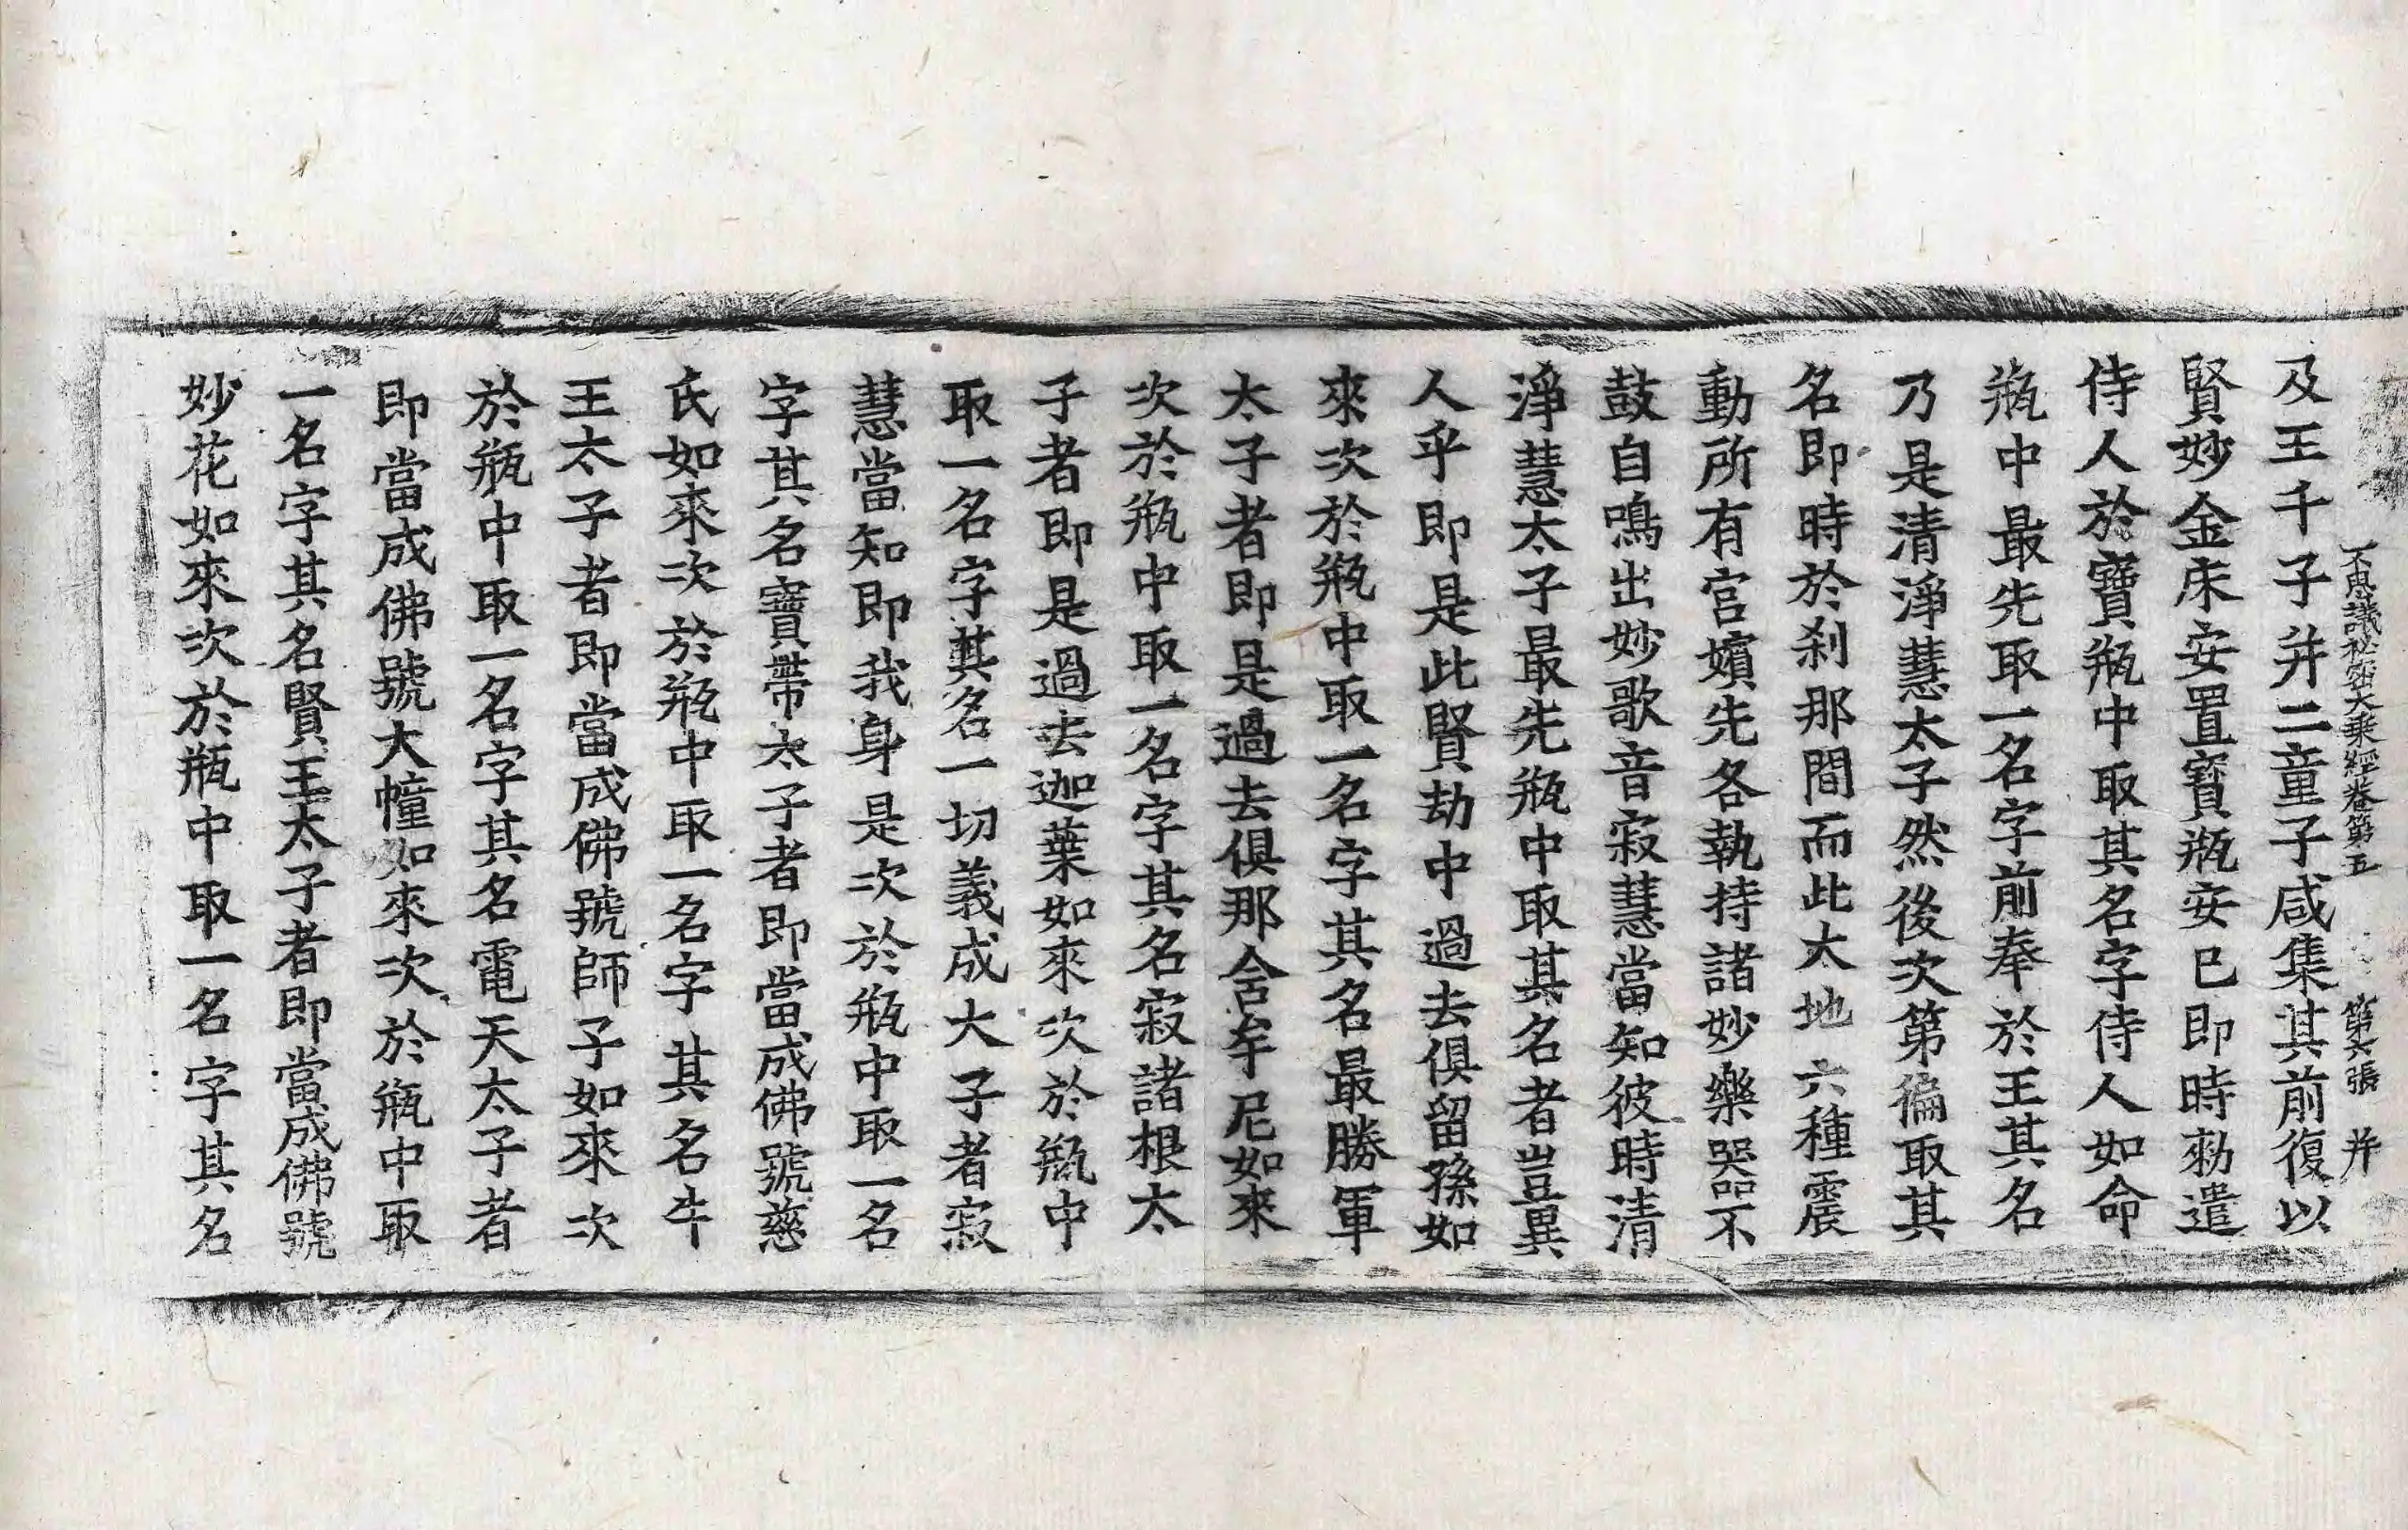 不思議秘密大乘經卷第五 第六張 并
及王千子并二童子咸集其前復以
賢妙金床安置寶瓶安已即時勑遣
侍人於寶瓶中取其名字侍人如命
瓶中最先取一名字前奉於王其名
乃是清淨慧太子然後次第徧取其
名即時於刹那間而此大地六種震
動所有宮嬪先各執持諸妙樂器不
鼓自鳴出妙歌音寂慧當知彼時清
淨慧太子最先瓶中取其名者豈異
人乎即是此賢劫中過去俱留孫如
來次於瓶中取一名字其名最勝軍
太子者即是過去俱那含牟尼如來
次於瓶中取一名字其名寂諸根太
子者即是過去迦葉如來次於瓶中
取一名字其名一切義成大子者寂
慧當知即我身是次於瓶中取一名
字其名寶帶太子者即當成佛號慈
氏如來次於瓶中取一名字其名牛
王太子者即當成佛號師子如來次
於瓶中取一名字其名電天太子者
即當成佛號大幢如來次於瓶中取
一名字其名賢王太子者即當成佛號
妙花如來次於瓶中取一名字其名